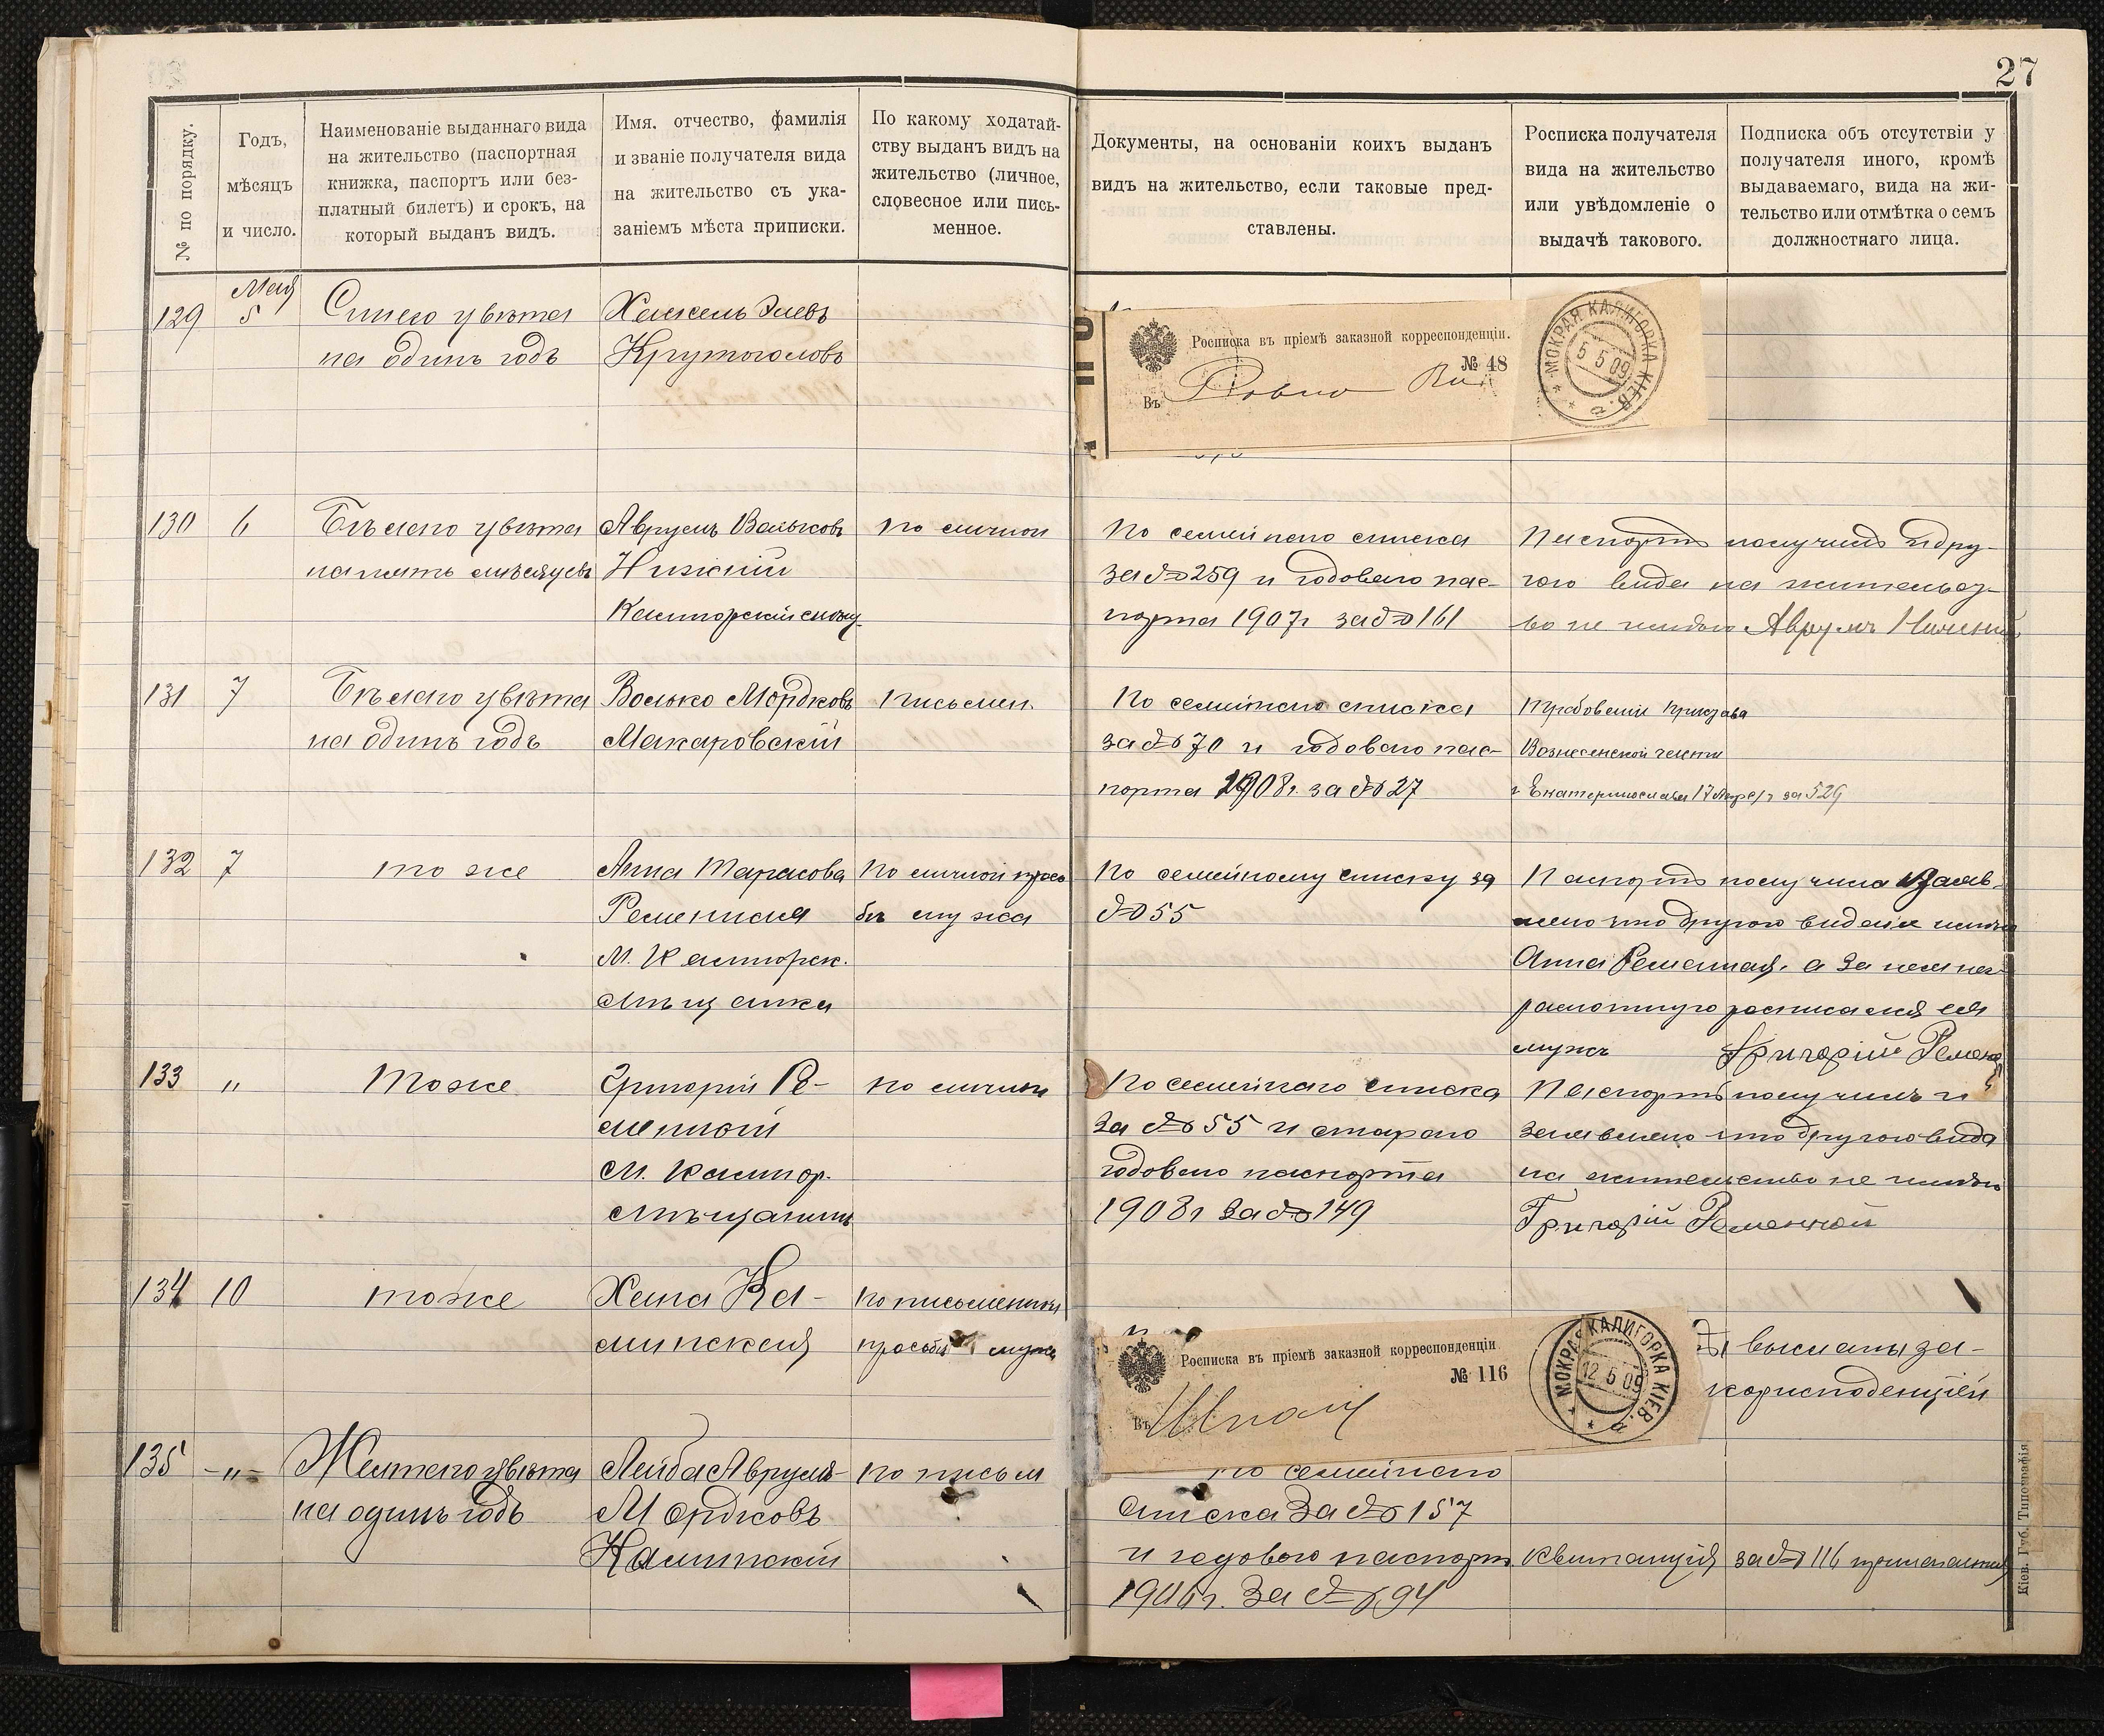 27
№ по порядку.
Годъ,
мѣсяцъ
и число.
Наименованіе выданнаго вида
на жительство (паспортная
книжка, паспортъ или без-
платный билетъ) и срокъ, на
который выданъ видъ.
Имя. отчество, фамилія
и званіе получателя вида
на жительство съ ука-
заніемъ мѣста приписки.
По какому ходатай-
ству выданъ видъ на
жительство (личное,
словесное или пись-
менное.
Документы, на основаніи коихъ выданъ
видъ на жительство, если таковые пред-
ставлены.
Росписка получателя
вида на жительство
или увѣдомленіе о
выдачѣ такового.
Подписка объ отсутствіи у
получателя иного, кромѣ
выдаваемаго, вида на жи-
тельство или отмѣтка о семъ
должностнаго лица.
129
Мая
5
Синего цвѣта
на одинъ годъ
Крутоголовъ
Росписка въ пріемѣ заказной корреспонденціи.
№ 48
Въ Ровно
МОКРАЯ КАЛИГОРКА КІЕВ. Г.
5 5 09
130
6
Бѣлаго цвѣта
на пять мѣсяцевъ
Аврумъ Вольковъ
Нижній
по личной
По семейного списка
за № 259 и годоваго пас-
порта 1907 г за № 161
Паспортъ получилъ и дру-
гого вида на жительст-
во не имѣю Аврумъ
131
7
Бѣлаго цвѣта
на одинъ годъ
Волько Мордковъ
Макаровскій
Письмен.
По семейнаго списка
за № 70 и годоваго пас-
порта 1908 г. за № 27
Пристава
Вознесенской части
г Екатеринослава 17 за 529
132
7
то же
Анна Тарасова
Ременная
М. Калигорск.
мѣщанка
По личной прось
бѣ мужа
По семейному списку за
№ 55
Паспортъ получила и заяв-
лено что другого вида не имѣю
Анна Ременная. а за нея не-
грамотную росписался ея
мужъ Григорій Ремен
133
"
Тоже
Григорій Ре-
менной
М. Калигор.
мѣщанинъ
по личной
По семейнаго списка
за № 55 и стараго
годоваго паспорта
1908 г за № 149
Паспортъ получилъ и
заявлено что другого вида
на жительство не имѣю
Григорій Ременной
134
10
тоже
Ка-
минская
по письменной
просьбѣ мужа
Росписка въ пріемѣ заказной корреспонденціи
№ 116
Въ Шполу
МОКРАЯ КАЛИГОРКА КІЕВ. Г.
12 5 09
высланы за-
корисподенціей
135
-"-
Желтаго цвѣта
на одинъ годъ
Лейба Аврумъ
Мордковъ
Каминскій
по письм
по семейнаго
списка за № 157
и годового паспорт.
1906 г. за № 94
Квитанція за № 116
Кіев. Губ. Типографія